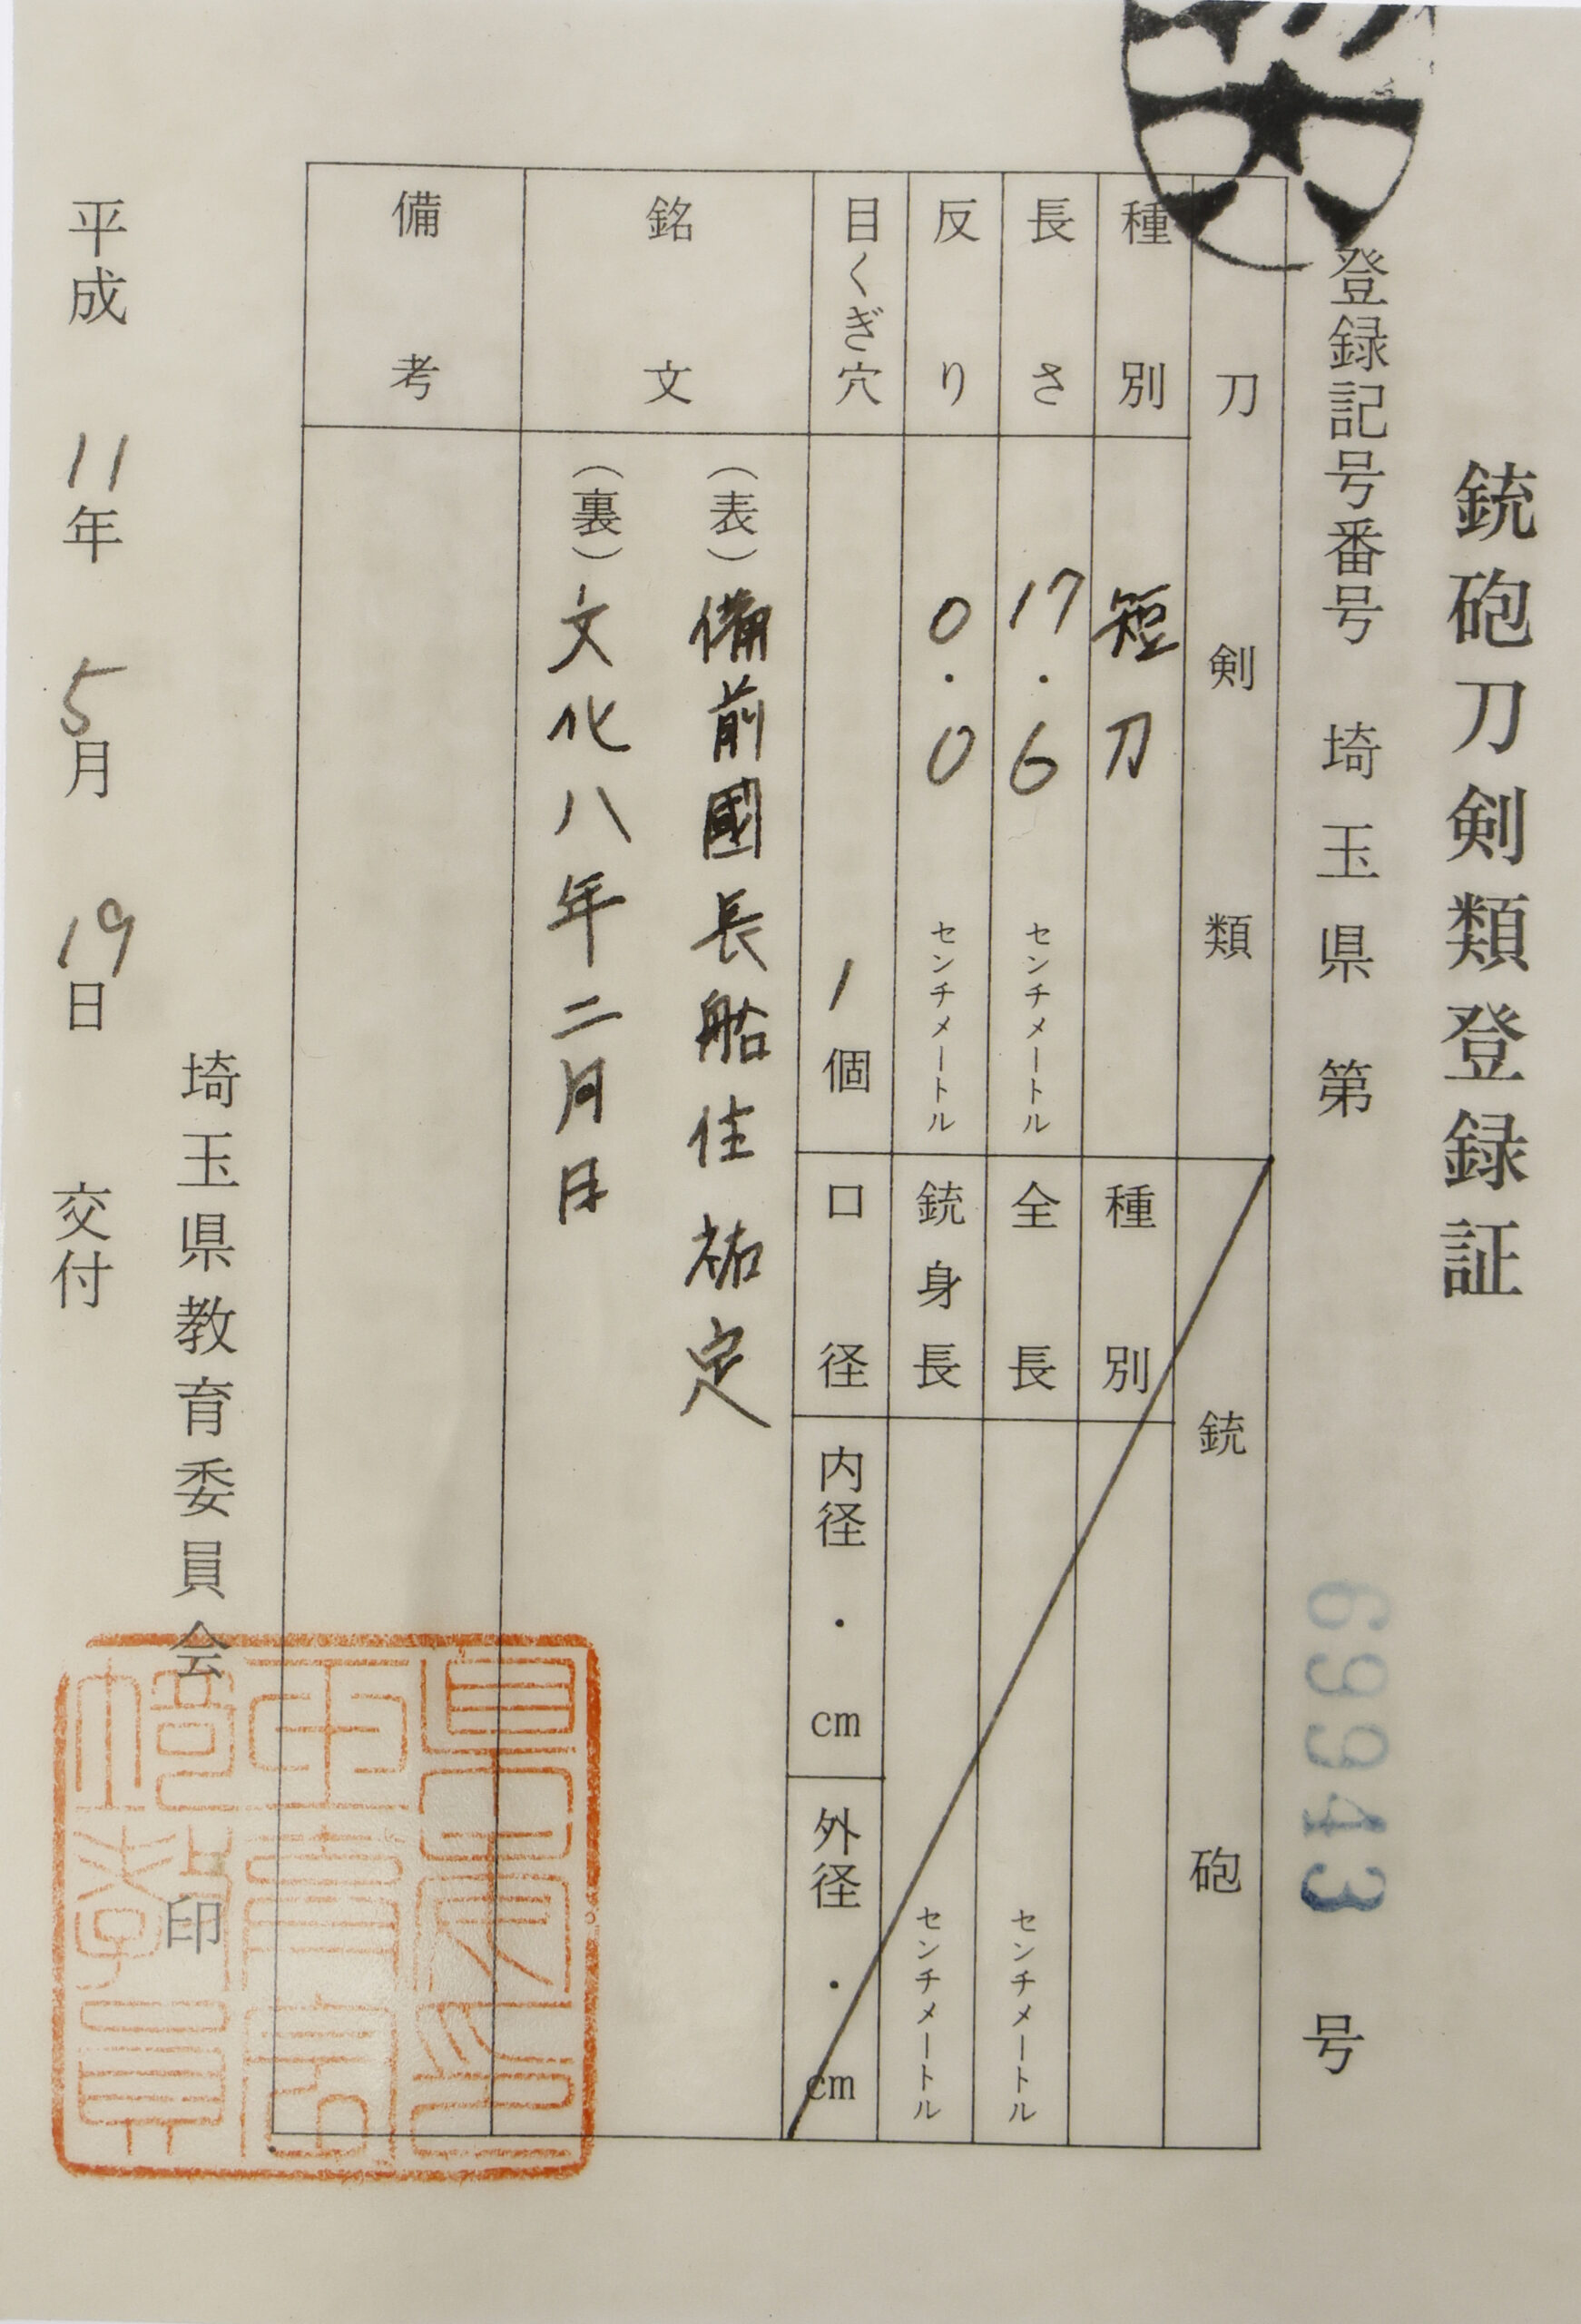 銃砲刀剣類登録証
登録記号番号 埼玉県 第 69943 号
刀剣類
種別 短刀
長さ 17.6 センチメートル
反り 0.0 センチメートル
目くぎ穴 1個
銃砲
種別
全長 センチメートル
銃身長 センチメートル
口径 内径 ・ cm 外径 ・ cm
銘文
(表)備前國長船住祐定
(裏)文化八年二月日
備考
埼玉県教育委員会 印
平成 11年 5月 19日 交付